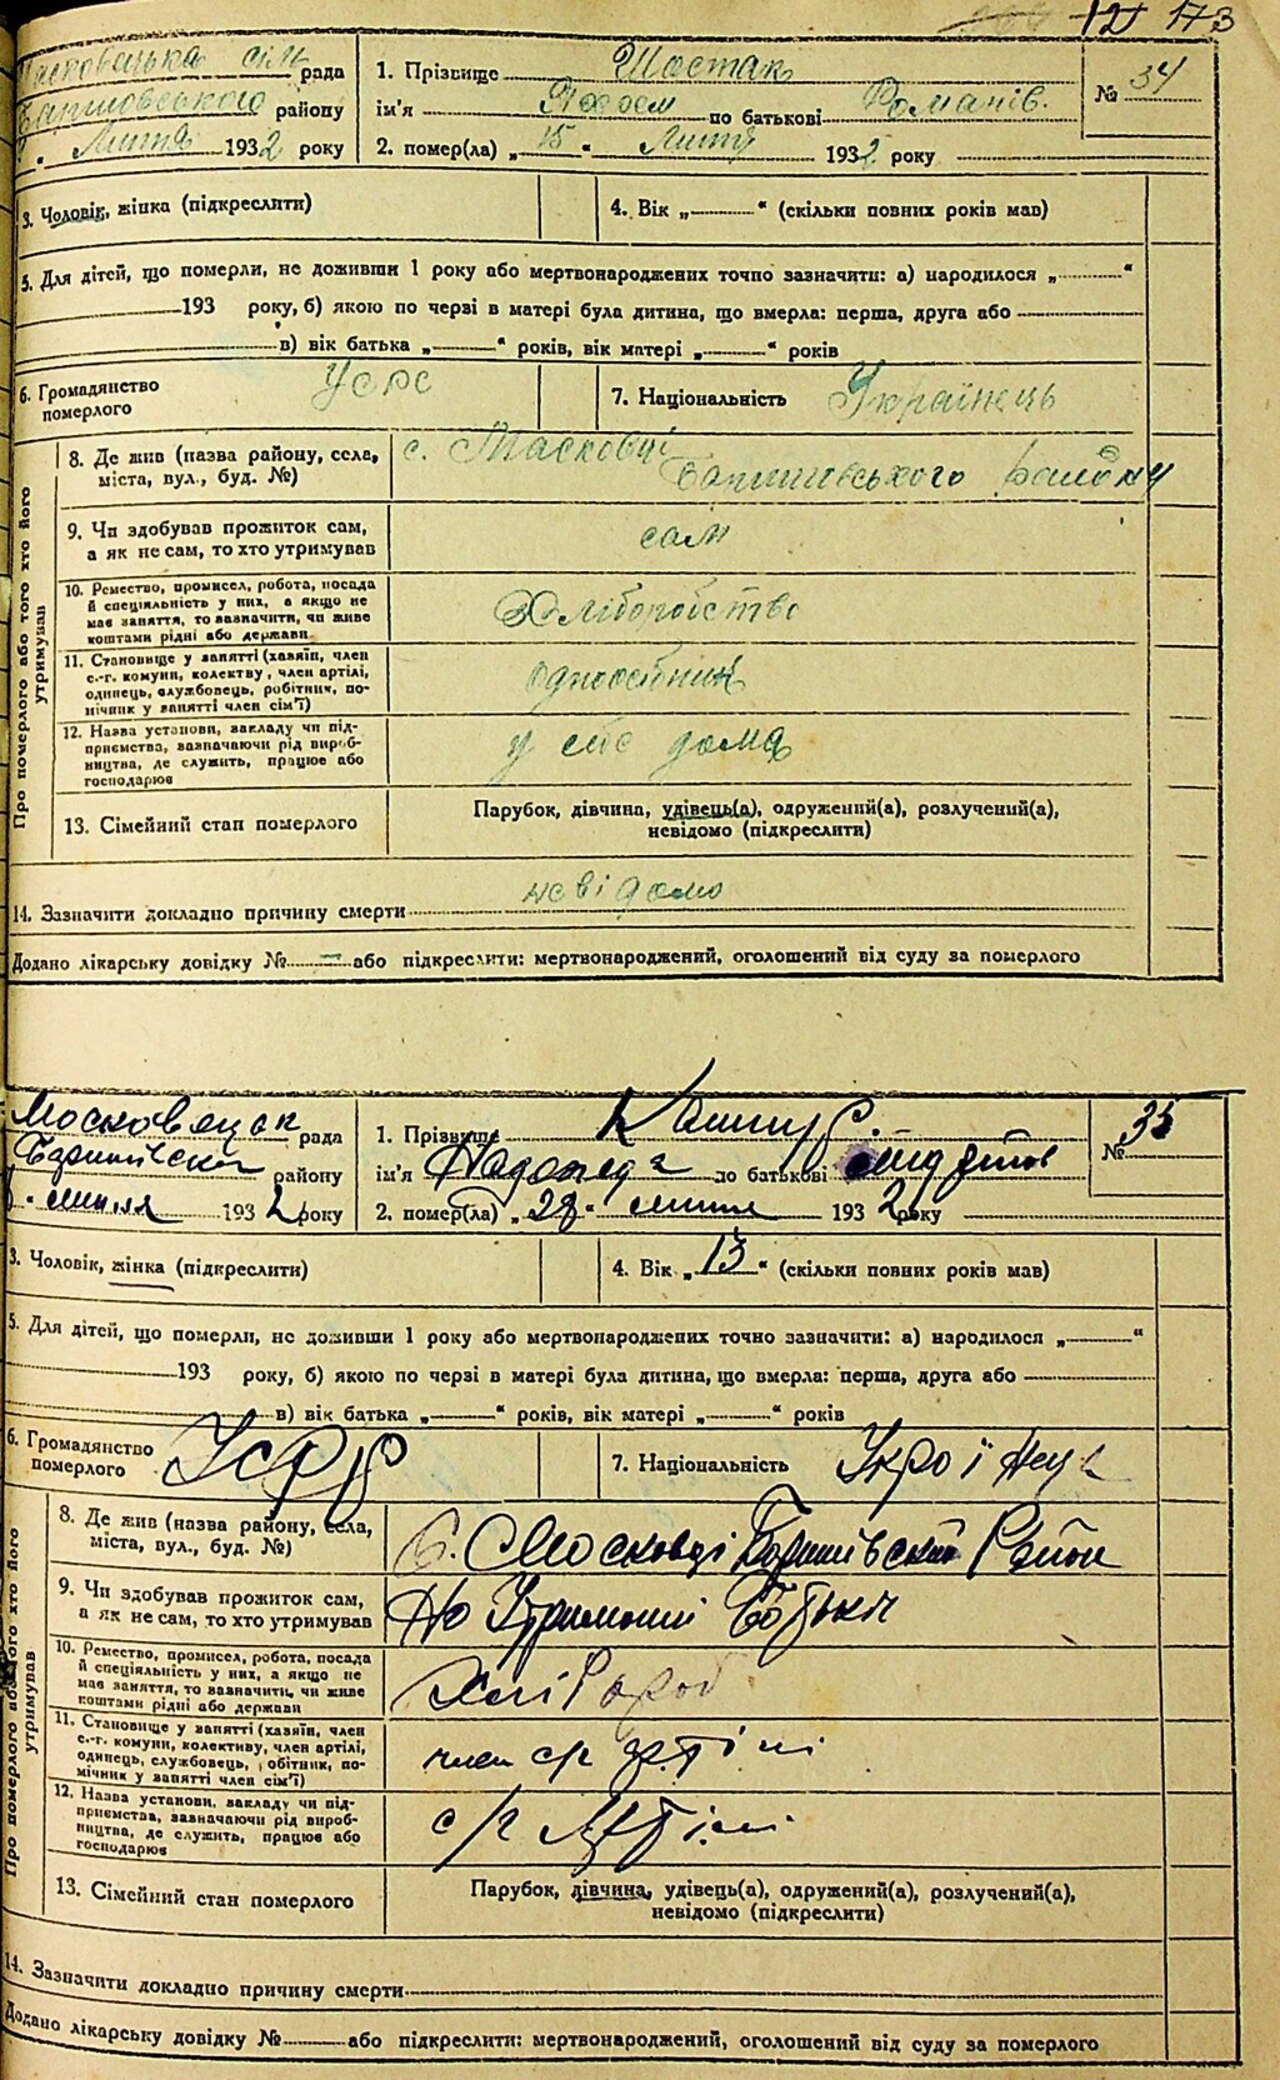 12 173
Масковецька сіль рада
Баришовського району
Липня 1932 року
1. Прізвище Шостак
ім'я по батькові Романів.
№ 34
2. помер(ла) „15“ Липня 1932 року
3. Чоловік, жінка (підкреслити)
4. Вік „ “ (скільки повних років мав)
5. Для дітей, що померли, не доживши 1 року або мертвонароджених точно зазначити: а) народилося „ “
193 року, б) якою по черзі в матері була дитина, що вмерла: перша, друга або
в) вік батька „ “ років, вік матері „ “ років
6. Громадянство
померлого
УСРС
7. Національність Українець
Про померлого або того хто його
утримував
8. Де жив (назва району, села,
міста, вул., буд. №)
с. Масковці
Баришівського району
9. Чи здобував прожиток сам,
а як не сам, то хто утримував
сам
10. Ремество, промисел, робота, посада
й спеціяльність у них, а якщо не
має заняття, то зазначити, чи живе
коштами рідні або держави
Хліборобство
11. Становище у занятті (хазяїн, член
с.-г. комуни, колективу, член артілі,
одинець, службовець, робітник, по-
мічник у занятті член сім'ї)
одноосібник
12. Назва установи, закладу чи під-
приємства, зазначаючи рід вироб-
ництва, де служить, працює або
господарює
у себе дома
13. Сімейний стан померлого
Парубок, дівчина, удівець(а), одружений(а), розлучений(а),
невідомо (підкреслити)
14. Зазначити докладно причину смерти невідомо
Додано лікарську довідку № — або підкреслити: мертвонароджений, оголошений від суду за померлого
Московецок рада
Баришівськ району
липня 1932 року
1. Прізвище
ім'я Надежда по батькові
№ 35
2. помер(ла) „28“ липня 1932 року
3. Чоловік, жінка (підкреслити)
4. Вік „13“ (скільки повних років мав)
5. Для дітей, що померли, не доживши 1 року або мертвонароджених точно зазначити: а) народилося „ “
193 року, б) якою по черзі в матері була дитина, що вмерла: перша, друга або
в) вік батька „ “ років, вік матері „ “ років
6. Громадянство
померлого
УСРР
7. Національність Українець
Про померлого або того хто його
утримував
8. Де жив (назва району, села,
міста, вул., буд. №)
С. Московці Баришівский Район
9. Чи здобував прожиток сам,
а як не сам, то хто утримував
На Утриманні Батьки
10. Ремество, промисел, робота, посада
й спеціяльність у них, а якщо не
має заняття, то зазначити, чи живе
коштами рідні або держави
Хлібороб
11. Становище у занятті (хазяїн, член
с.-г. комуни, колективу, член артілі,
одинець, службовець, робітник, по-
мічник у занятті член сім'ї)
член с/г артілі
12. Назва установи, закладу чи під-
приємства, зазначаючи рід вироб-
ництва, де служить, працює або
господарює
с/г Артілі
13. Сімейний стан померлого
Парубок, дівчина, удівець(а), одружений(а), розлучений(а),
невідомо (підкреслити)
14. Зазначити докладно причину смерти
Додано лікарську довідку № або підкреслити: мертвонароджений, оголошений від суду за померлого